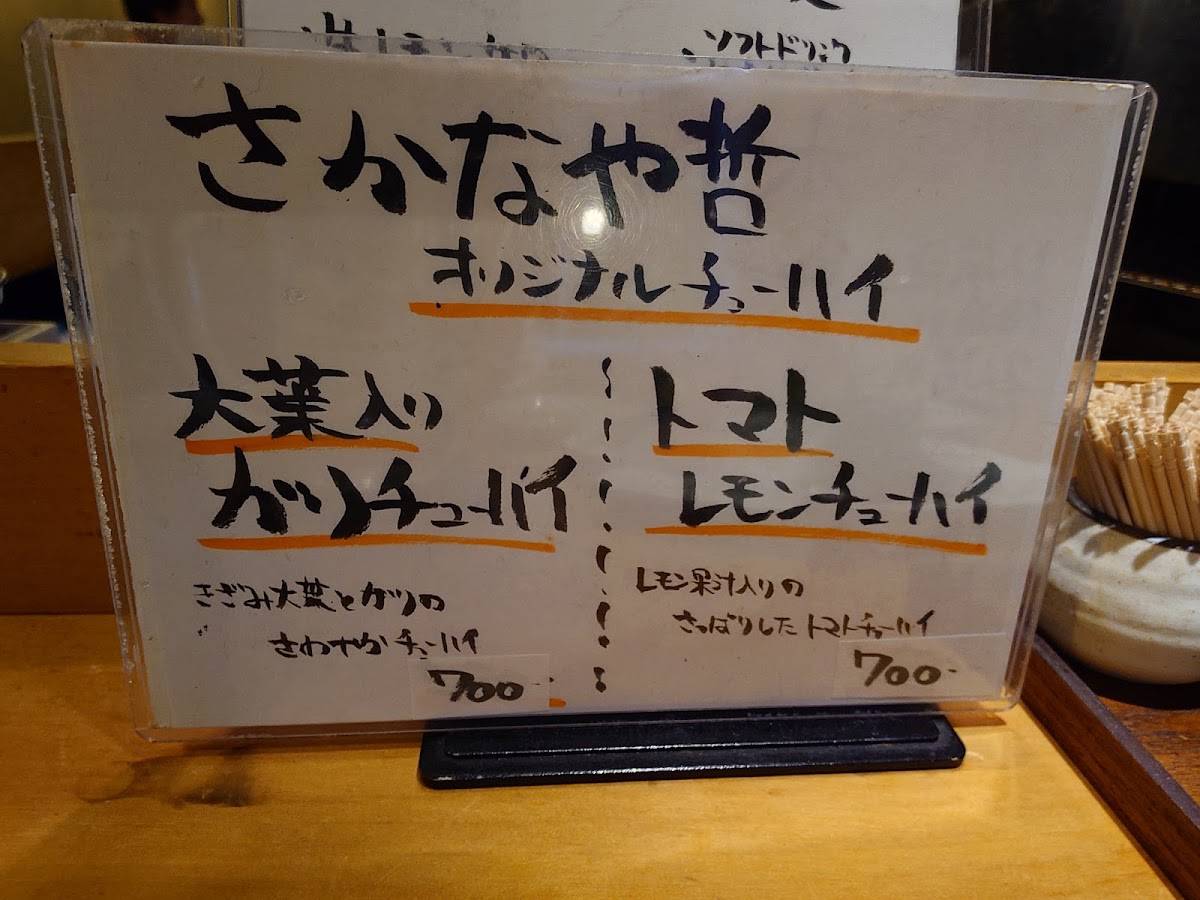 ソフトドリンク
さかなや哲
オリジナルチューハイ
大葉入り
ガリチューハイ
きざみ大葉とガリの
さわやかチューハイ
700
トマト
レモンチューハイ
レモン果汁入りの
さっぱりしたトマトチューハイ
700-